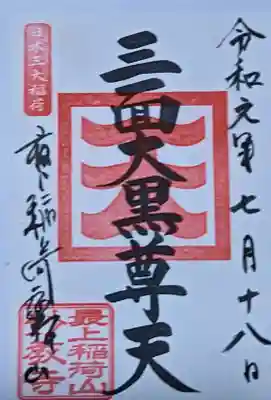 令和元年七月十八日
三面大黒尊天
日本三大稲荷
最上稲荷山
妙教寺